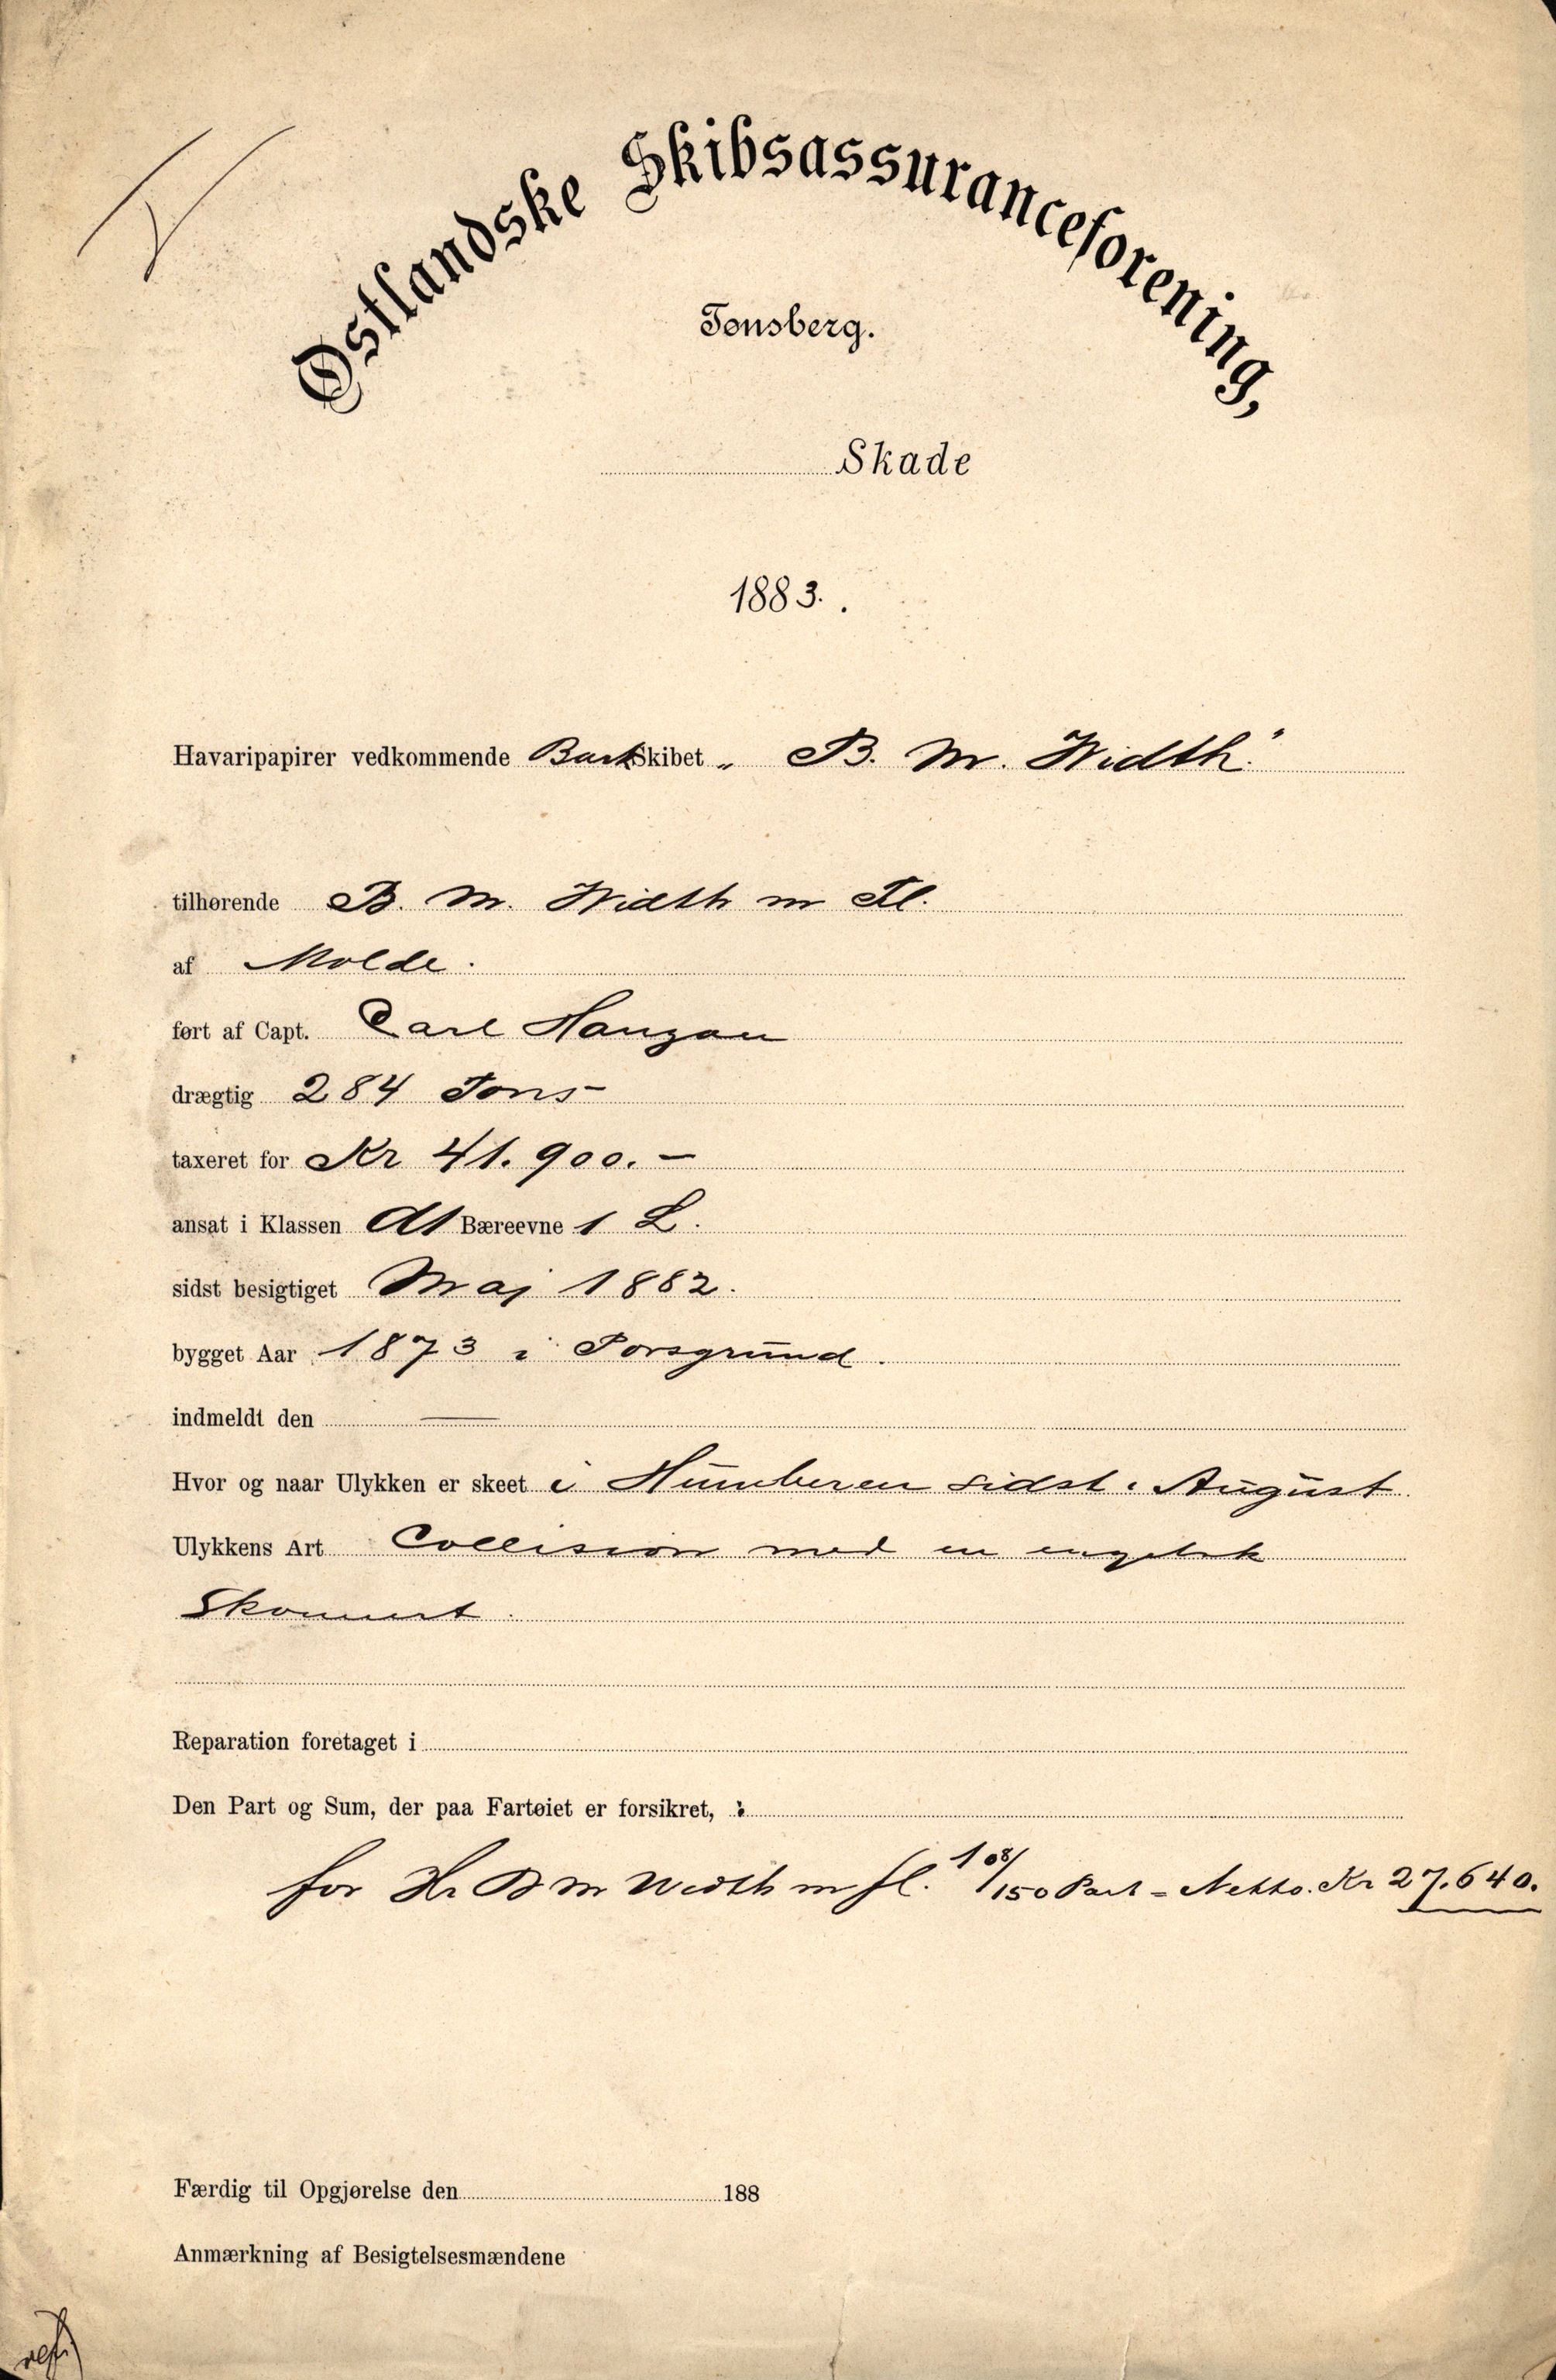 Østlandske Skibsassuranceforening,
Tønsberg.
Skade
1883.
Havaripapirer vedkommende Bark Skibet „ B. M. Width“
tilhørende B. M. Width m Fl.
af Molde.
ført af Capt. Carl
drægtig 284 Tons
taxeret for Kr 41.900. –
ansat i Klassen A1 Bæreevne 1 L.
sidst besigtiget Maj 1882.
bygget Aar 1873 i Porsgrund.
indmeldt den —
Hvor og naar Ulykken er skeet i Humberen sidst i August
Ulykkens Art Collision med en engelsk
Skonnert.
Reparation foretaget i
Den Part og Sum, der paa Fartøiet er forsikret, :
for Hr B M Width m fl. 108/150 Part = Netto. Kr 27.640.
Færdig til Opgjørelse den 188
Anmærkning af Besigtelsesmændene